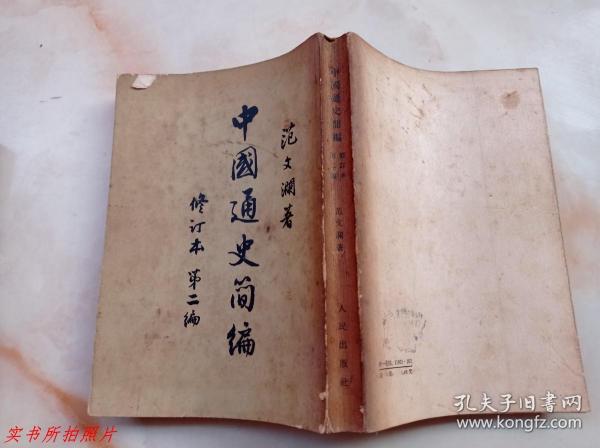 范文澜著
中國通史简编
修订本 第二编
中國通史簡編
修訂本
范文瀾著
人民出版社
实书所拍照片
孔夫子旧书网